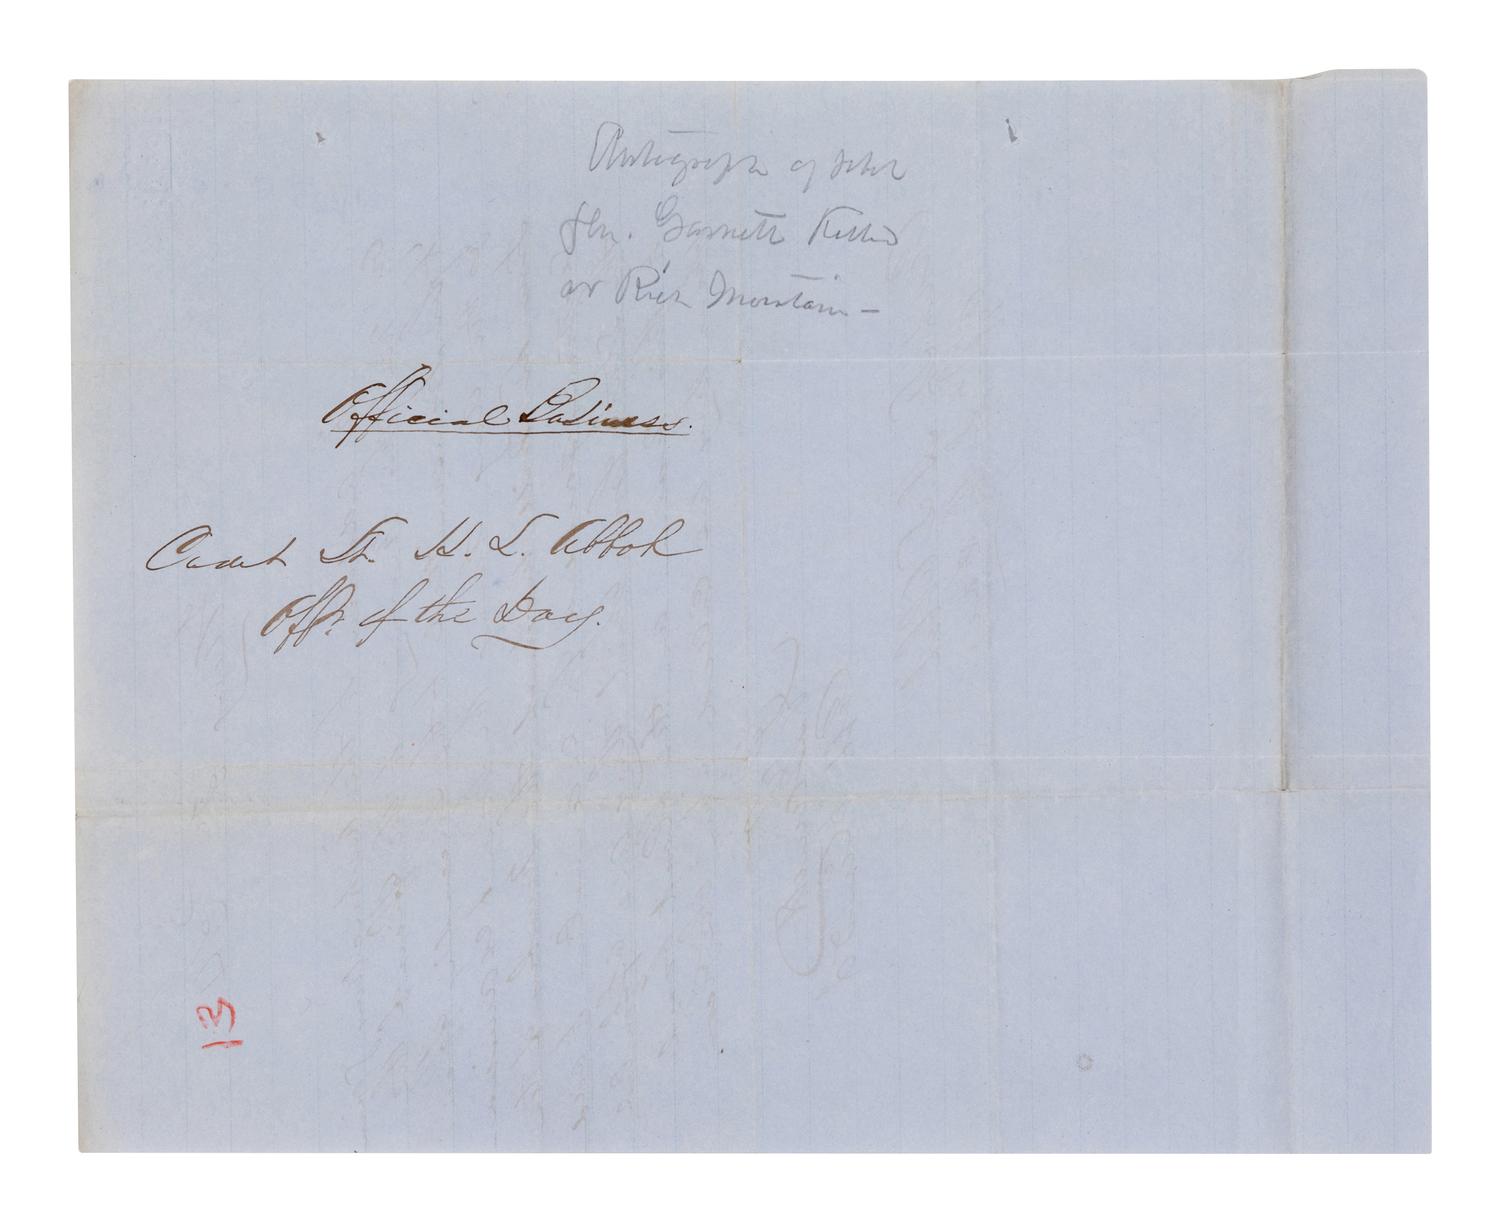 Autograph of rebel
Gen. Garnett killed
at Rich Mountain –
Official Business.
Cadet Lt. H. L. Abbot
Offr. of the Day.